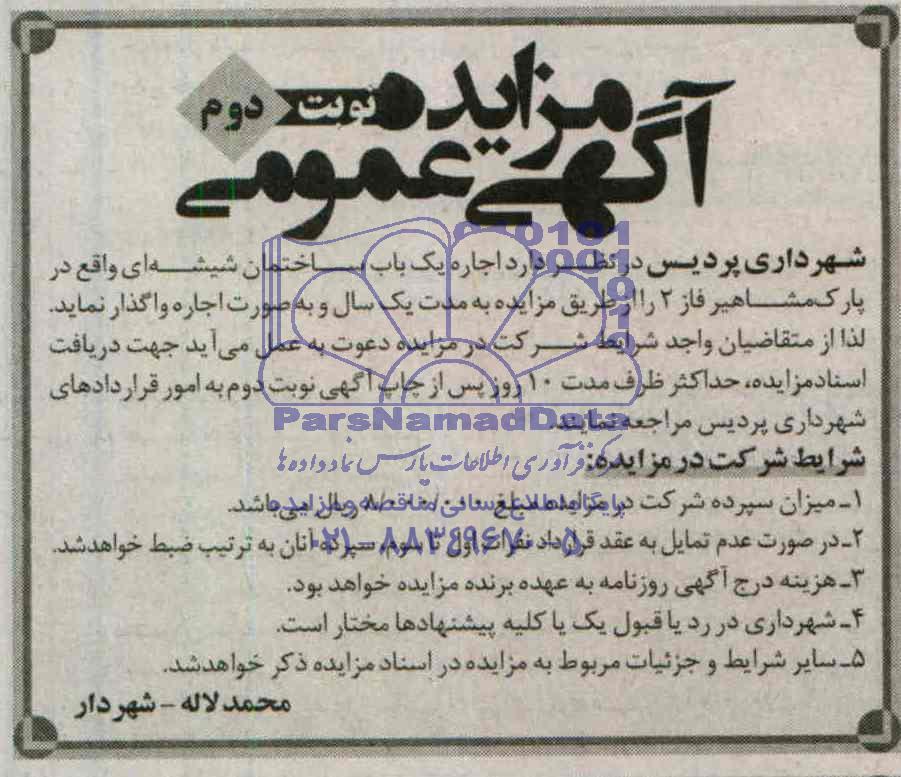 آگهی مزایده عمومی
نوبت دوم
شهرداری پردیس در نظر دارد اجاره یک باب ساختمان شیشه‌ای واقع در
پارک مشاهیر فاز ۲ را از طریق مزایده به مدت یک سال و به صورت اجاره واگذار نماید.
لذا از متقاضیان واجد شرایط شرکت در مزایده دعوت به عمل می‌آید جهت دریافت
اسناد مزایده، حداکثر ظرف مدت ۱۰ روز پس از چاپ آگهی نوبت دوم به امور قراردادهای
شهرداری پردیس مراجعه نمایند.
شرایط شرکت در مزایده:
۱ـ میزان سپرده شرکت در مزایده مبلغ ۸/۰۰۰/۰۰۰ ریال می‌باشد.
۲ـ در صورت عدم تمایل به عقد قرارداد نفرات اول تا سوم، سپرده آنان به ترتیب ضبط خواهد شد.
۳ـ هزینه درج آگهی روزنامه به عهده برنده مزایده خواهد بود.
۴ـ شهرداری در رد یا قبول یک یا کلیه پیشنهادها مختار است.
۵ـ سایر شرایط و جزئیات مربوط به مزایده در اسناد مزایده ذکر خواهد شد.
محمد لاله - شهردار
ParsNamadData
مرکز فرآوری اطلاعات پارس نماد داده ها
پایگاه اطلاع رسانی مناقصه و مزایده
۰۲۱-۸۸۳۴۹۶۷۰-۵